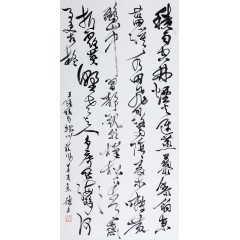 積雨空林煙火遲蒸藜炊黍餉東
菑漠漠水田飛白鷺陰陰夏木囀黃
鸝山中習靜觀朝槿松下清齋
折露葵野老與人爭席罷海鷗何
事更相疑
王維